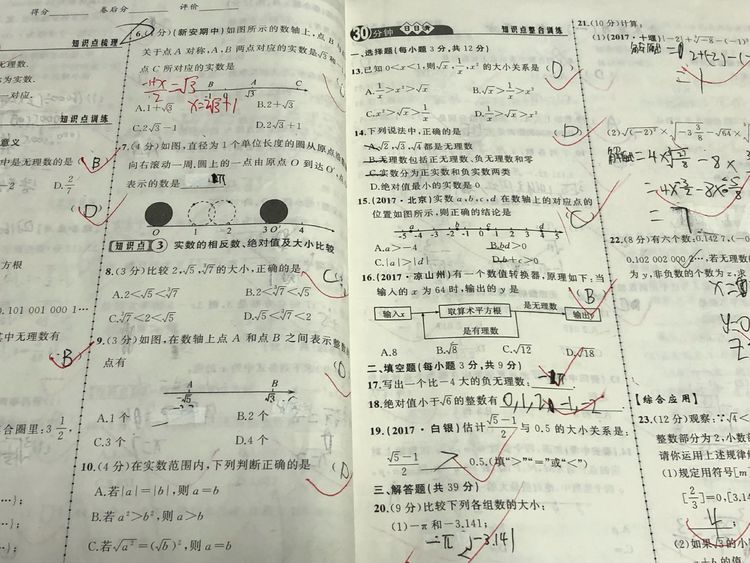 得分 卷后分 评价
知识点梳理
无理数.
为实数.
一对应.
知识点训练
意义
中是无理数的是
(B)
D.2/7
(D)
方根
0.101 001 000 1…
其中无理数有
(B)
合圈里:3 1/2,
…};
…};
6.(3分)(新安期中)如图所示的数轴上,点B与
关于点A对称,A、B两点对应的实数是√3和
点C所对应的实数是
(-1+x)/2=√3
x=2√3+1
B A C
-1 0 √3
A.1+√3 B.2+√3
C.2√3-1 D.2√3+1
7.(4分)如图,直径为1个单位长度的圆从原点
向右滚动一周,圆上的一点由原点O到达O′,
表示的数是 π
0 1 2 3 O′ 4
【知识点】3 实数的相反数、绝对值及大小比较
8.(3分)比较2,√5,∛7的大小,正确的是 C
A.2<√5<∛7 B.2<∛7<√5
C.∛7<2<√5 D.√5<∛7<2
9.(3分)如图,在数轴上点A和点B之间表示整
点有
(D
A B
-√5 √3
A.1个 B.2个
C.3个 D.4个
10.(4分)在实数范围内,下列判断正确的是 (D
A.若|a|=|b|,则a=b
B.若a²>b²,则a>b
C.若√a²=(√b)²,则a=b
30分钟 日日清 知识点整合训练
一、选择题(每小题3分,共12分)
13.已知0<x<1,则√x,1/x,x²的大小关系是(D)
A.1/x>x²>√x B.√x>1/x>x²
C.x²>√x>1/x D.1/x>√x>x²
14.下列说法中,正确的是 (D)
A.√2,√3,√4都是无理数
B.无理数包括正无理数、负无理数和零
C.实数分为正实数和负实数两类
D.绝对值最小的实数是0
15.(2017·北京)实数a,b,c,d在数轴上的对应点的
位置如图所示,则正确的结论是 (C
a b c d
-5 -4 -3 -2 -1 0 1 2 3 4 5
A.a>-4 B.bd>0
C.|a|>|d| D.b+c>0
16.(2017·凉山州)有一个数值转换器,原理如下:当
输入的x为64时,输出的y是 (B)
是无理数
输入x 取算术平方根 输出y
是有理数
A.8 B.√8 C.√12 D.√18
二、填空题(每小题3分,共9分)
17.写出一个比-4大的负无理数: -π
18.绝对值小于√6的整数有 0,1,2,-1,-2
19.(2017·白银)估计(√5-1)/2与0.5的大小关系是:
(√5-1)/2 > 0.5.(填“>”“=”或“<”)
三、解答题(共39分)
20.(9分)比较下列各组数的大小:
(1)-π和-3.141;
-π<-3.141
21.(10分)计算:
(1)(2017·十堰)|-2|+∛-8-(-1)
解:原式= 2+(-2)-(-
=1
(2)√(-2)²×
解:原式=4×
=7
22.(8分)有六个数:0.142 7,(-0
0.102 002 000 2…,若无理数
为y,非负数的个数为z,求
x=
【综合应用】
23.(12分)观察:∵√4<
整数部分为2,小数
请你运用上述规律
(1)规定用符号[m
[2/3]=0,[3.14
4
(2)如果√3的小
a+b的值.